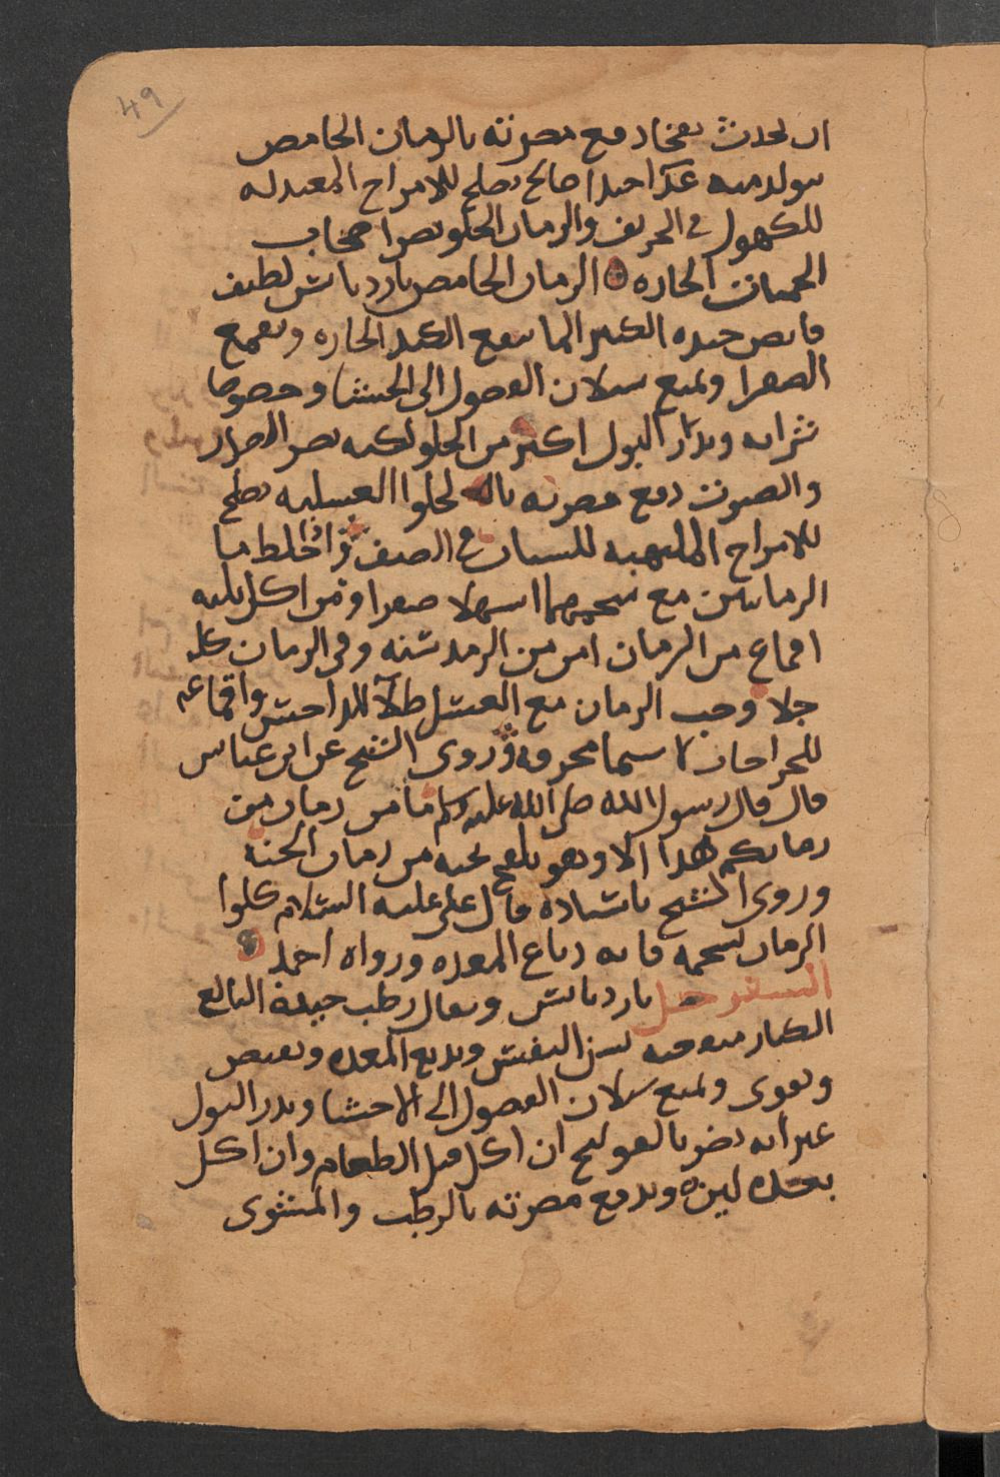 49
انه يحدث نفخا دفع مضرته بالرمان الحامض
يتولد منه غذا جيدا صالح يصلح للامزاج المعتدله
للكهول في الخريف والرمان الحلو يضر اصحاب
الحميات الحاره الرمان الحامض بارد يابس لطيف
قابض جيده الكثير الما ينفع الكبد الحاره ويقمع
الصفرا ويمنع سيلان الفضول الى الحشا وخصوصا
شرابه ويدر البول اكثر من الحلو لكنه يضر الصدر
والصوت دفع مضرته بالحلوا العسليه يصلح
للامزاج الملتهبه للشباب في الصيف واذا خلط ما
الرمانين مع شحمهما اسهلا صفرا ومن اكل ثلثه
اقماع من الرمان امن من الرمد سنه وفي الرمان كله
جلا وحب الرمان مع العسل طلآ للداحس واقماعه
للجراحات لا سيما محروقه وروى الشيخ عن ابن عباس
قال قال رسول الله صلى الله عليه وسلم ما من رمان من
رمانكم هذا الا وهو يلقح بحبه من رمان الجنه
وروى الشيخ باسناده قال علي عليه السلام كلوا
الرمان بشحمه فانه دباغ المعده ورواه احمد
السفرجل بارد يابس ويقال رطب جيده البالغ
الكبار منفعته يسر النفس ويدبغ المعده ويقبض
ويقوى ويمنع سيلان الفضول الى الاحشا ويدر البول
غير انه يضر بالقولنج ان اكل قبل الطعام وان اكل
بعده لينه ويدفع مضرته بالرطب والمشوى